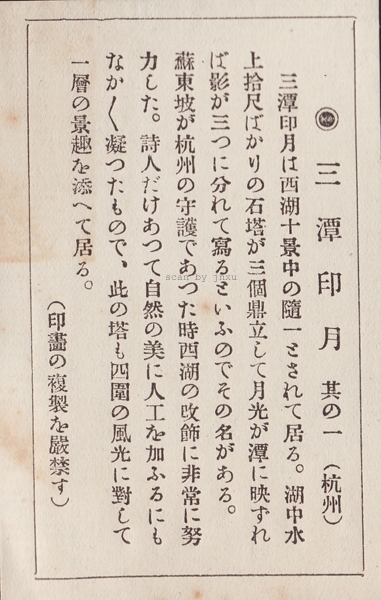 三潭印月 其の一 (杭州)
三潭印月は西湖十景中の隨一とされて居る。湖中水
上拾尺ばかりの石塔が三個鼎立して月光が潭に映ずれ
ば影が三つに分れて寫るといふのでその名がある。
蘇東坡が杭州の守護であつた時西湖の改飾に非常に努
力した。詩人だけあつて自然の美に人工を加ふるにも
なか〱凝つたもので、此の塔も四圍の風光に對して
一層の景趣を添へて居る。
(印畫の複製を嚴禁す)
scan by jhxu